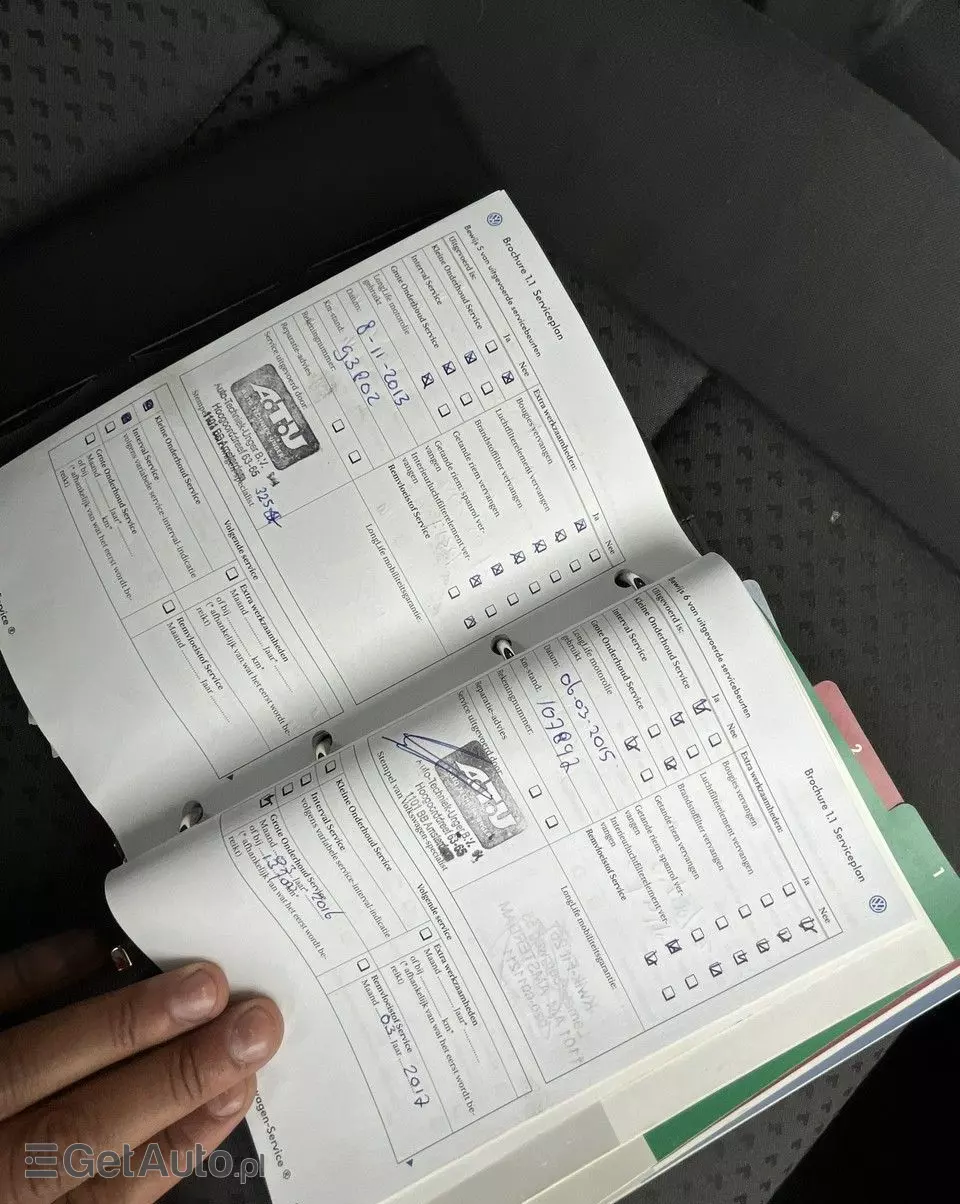 Brochure 1.1 Serviceplan
Bewijs 5 van uitgevoerde servicebeurten
Uitgevoerd is:
Ja
Nee
Kleine Onderhoud Service
Interval Service
Grote Onderhoud Service
LongLife motorolie
gebruikt
Datum: 8-11-2013
Km-stand:
Rekeningnummer:
Reparatie-advies
Service uitgevoerd door:
A.T.U
Auto-Techniek Unger B.V.
Hoogoorddreef 63-65
Extra werkzaamheden:
Ja
Nee
Bougies vervangen
Luchtfilterelement vervangen
Brandstoffilter vervangen
Getande riem vervangen
Getande riem: spanrol ver-
vangen
Interieurluchtfilterelement ver-
vangen
Remvloeistof Service
LongLife mobiliteitsgarantie:
Volgende service
Kleine Onderhoud Service
Interval Service
volgens variabele service-interval-indicatie
Grote Onderhoud Service
Maand ......... Jaar* .........
of bij ......... km*
(* afhankelijk van wat het eerst wordt be-
reikt)
Extra werkzaamheden
Maand ......... Jaar* .........
of bij ......... km*
(* afhankelijk van wat het eerst wordt be-
reikt)
Remvloeistof Service
Maand ......... Jaar .........
Brochure 1.1 Serviceplan
Bewijs 6 van uitgevoerde servicebeurten
Uitgevoerd is:
Ja
Nee
Kleine Onderhoud Service
Interval Service
Grote Onderhoud Service
LongLife motorolie
gebruikt
Datum: 06-03-2015
Km-stand: 107892
Rekeningnummer:
Reparatie-advies
Service uitgevoerd door:
A.T.U
Auto-Techniek Unger B.V.
Hoogoorddreef 63-65
Stempel van Volkswagen-specialist
Extra werkzaamheden:
Ja
Nee
Bougies vervangen
Luchtfilterelement vervangen
Brandstoffilter vervangen
Getande riem vervangen
Getande riem: spanrol ver-
vangen
Interieurluchtfilterelement ver-
vangen
Remvloeistof Service
LongLife mobiliteitsgarantie:
Volgende service
Kleine Onderhoud Service
Interval Service
volgens variabele service-interval-indicatie
Grote Onderhoud Service
Maand Jaar* 2016
of bij km*
(* afhankelijk van wat het eerst wordt be-
reikt)
Extra werkzaamheden
Maand ......... Jaar* .........
of bij ......... km*
(* afhankelijk van wat het eerst wordt be-
reikt)
Remvloeistof Service
Maand 03 Jaar 2017
2
1
GetAuto.pl